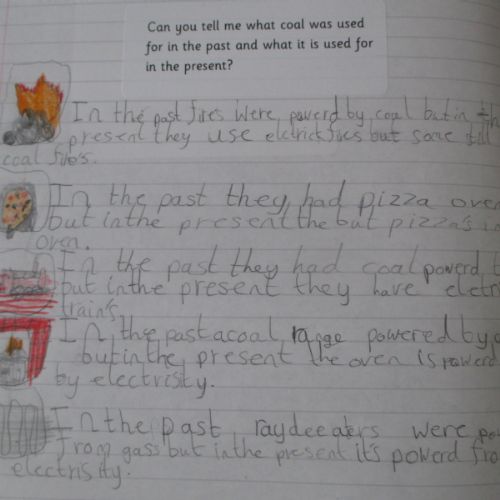 Can you tell me what coal was used
for in the past and what it is used for
in the present?
In the past fires were powerd by coal but in the
present they use elctrick fires but some till
coal fires.
In the past they had pizza oven
but in the present the but pizza's in
oven.
In the past they had coal powerd t
but in the present they have eletri
train's.
In the past a coal range powered by c
but in the present the oven is powerd
by electrisity.
In the past raydeeaters were po
from gass but in the present it's powerd fro
electrisity.